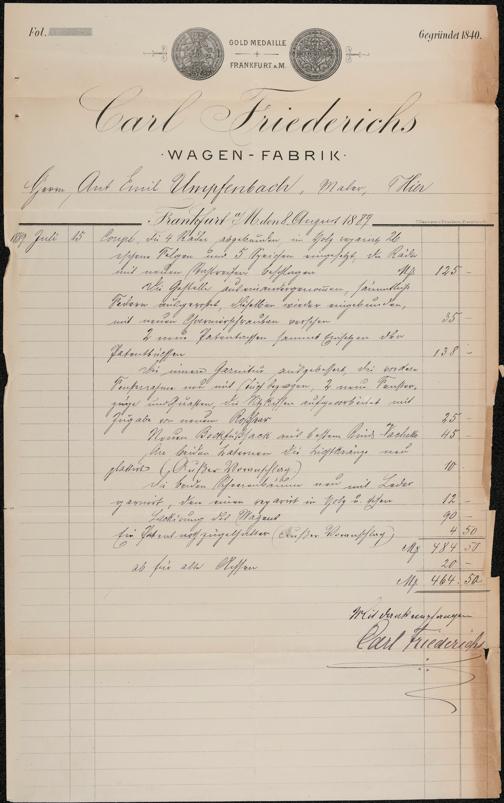 Fol.
Gegründet 1840.
GOLD MEDAILLE
FRANKFURT A.M.
Carl Friederichs
·WAGEN-FABRIK·
Herrn Ant Emil Umpfenbach, Maler, Hier
Frankfurt a/M. den 8. August 1889
1889 Juli 15 Coupé, die 4 Räder abgebunden, in Holz reparirt 26
Felgen und 5 Speichen eingesetzt, die Räder
mit neuen beschlagen Mk 125 –
Die Gestelle auseinandergenommen, sämmtliche
Federn dieselben wieder eingebunden,
mit neuen versehen 35 –
2 neue Patentachsen sammt Einsetzen der
Patentbüchsen 138 –
Die innere Garnitur ausgebessert, die vordere
neu mit bezogen, 2 neue Fenster-
züge und Quasten, die Sitzkissen aufgearbeitet mit
Zugabe von neuem Roßhaar 25 –
Neuen Bockfußsack aus bestem 45 –
An beiden Laternen die neu
plattirt (Außer Voranschlag) 10 –
Die beiden neu mit Leder
garnirt, den einen reparirt in Holz u. 12 –
Lackirung des Wagens 90 –
Ein Patent (Außer Voranschlag) 4 50
Mk 484 50
ab für alte Achsen 20 –
Mk 464. 50
Mit Dank empfangen
Carl Friederichs